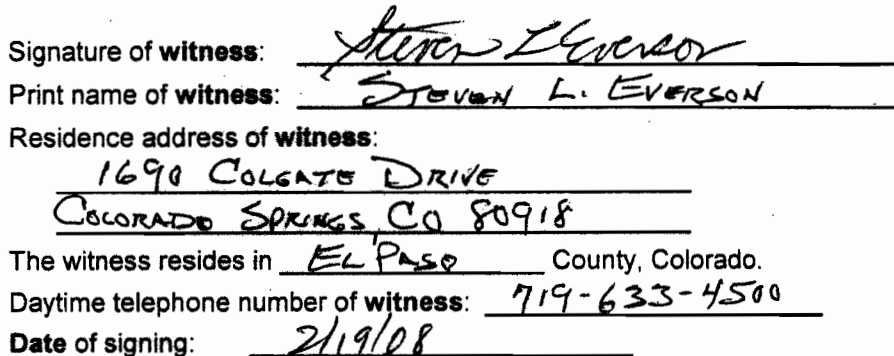 Signature of witness: Steven L Everson
Print name of witness: STEVEN L. EVERSON
Residence address of witness:
1690 COLGATE DRIVE
COLORADO SPRINGS, CO 80918
The witness resides in EL PASO County, Colorado.
Daytime telephone number of witness: 719-633-4500
Date of signing: 2/19/08